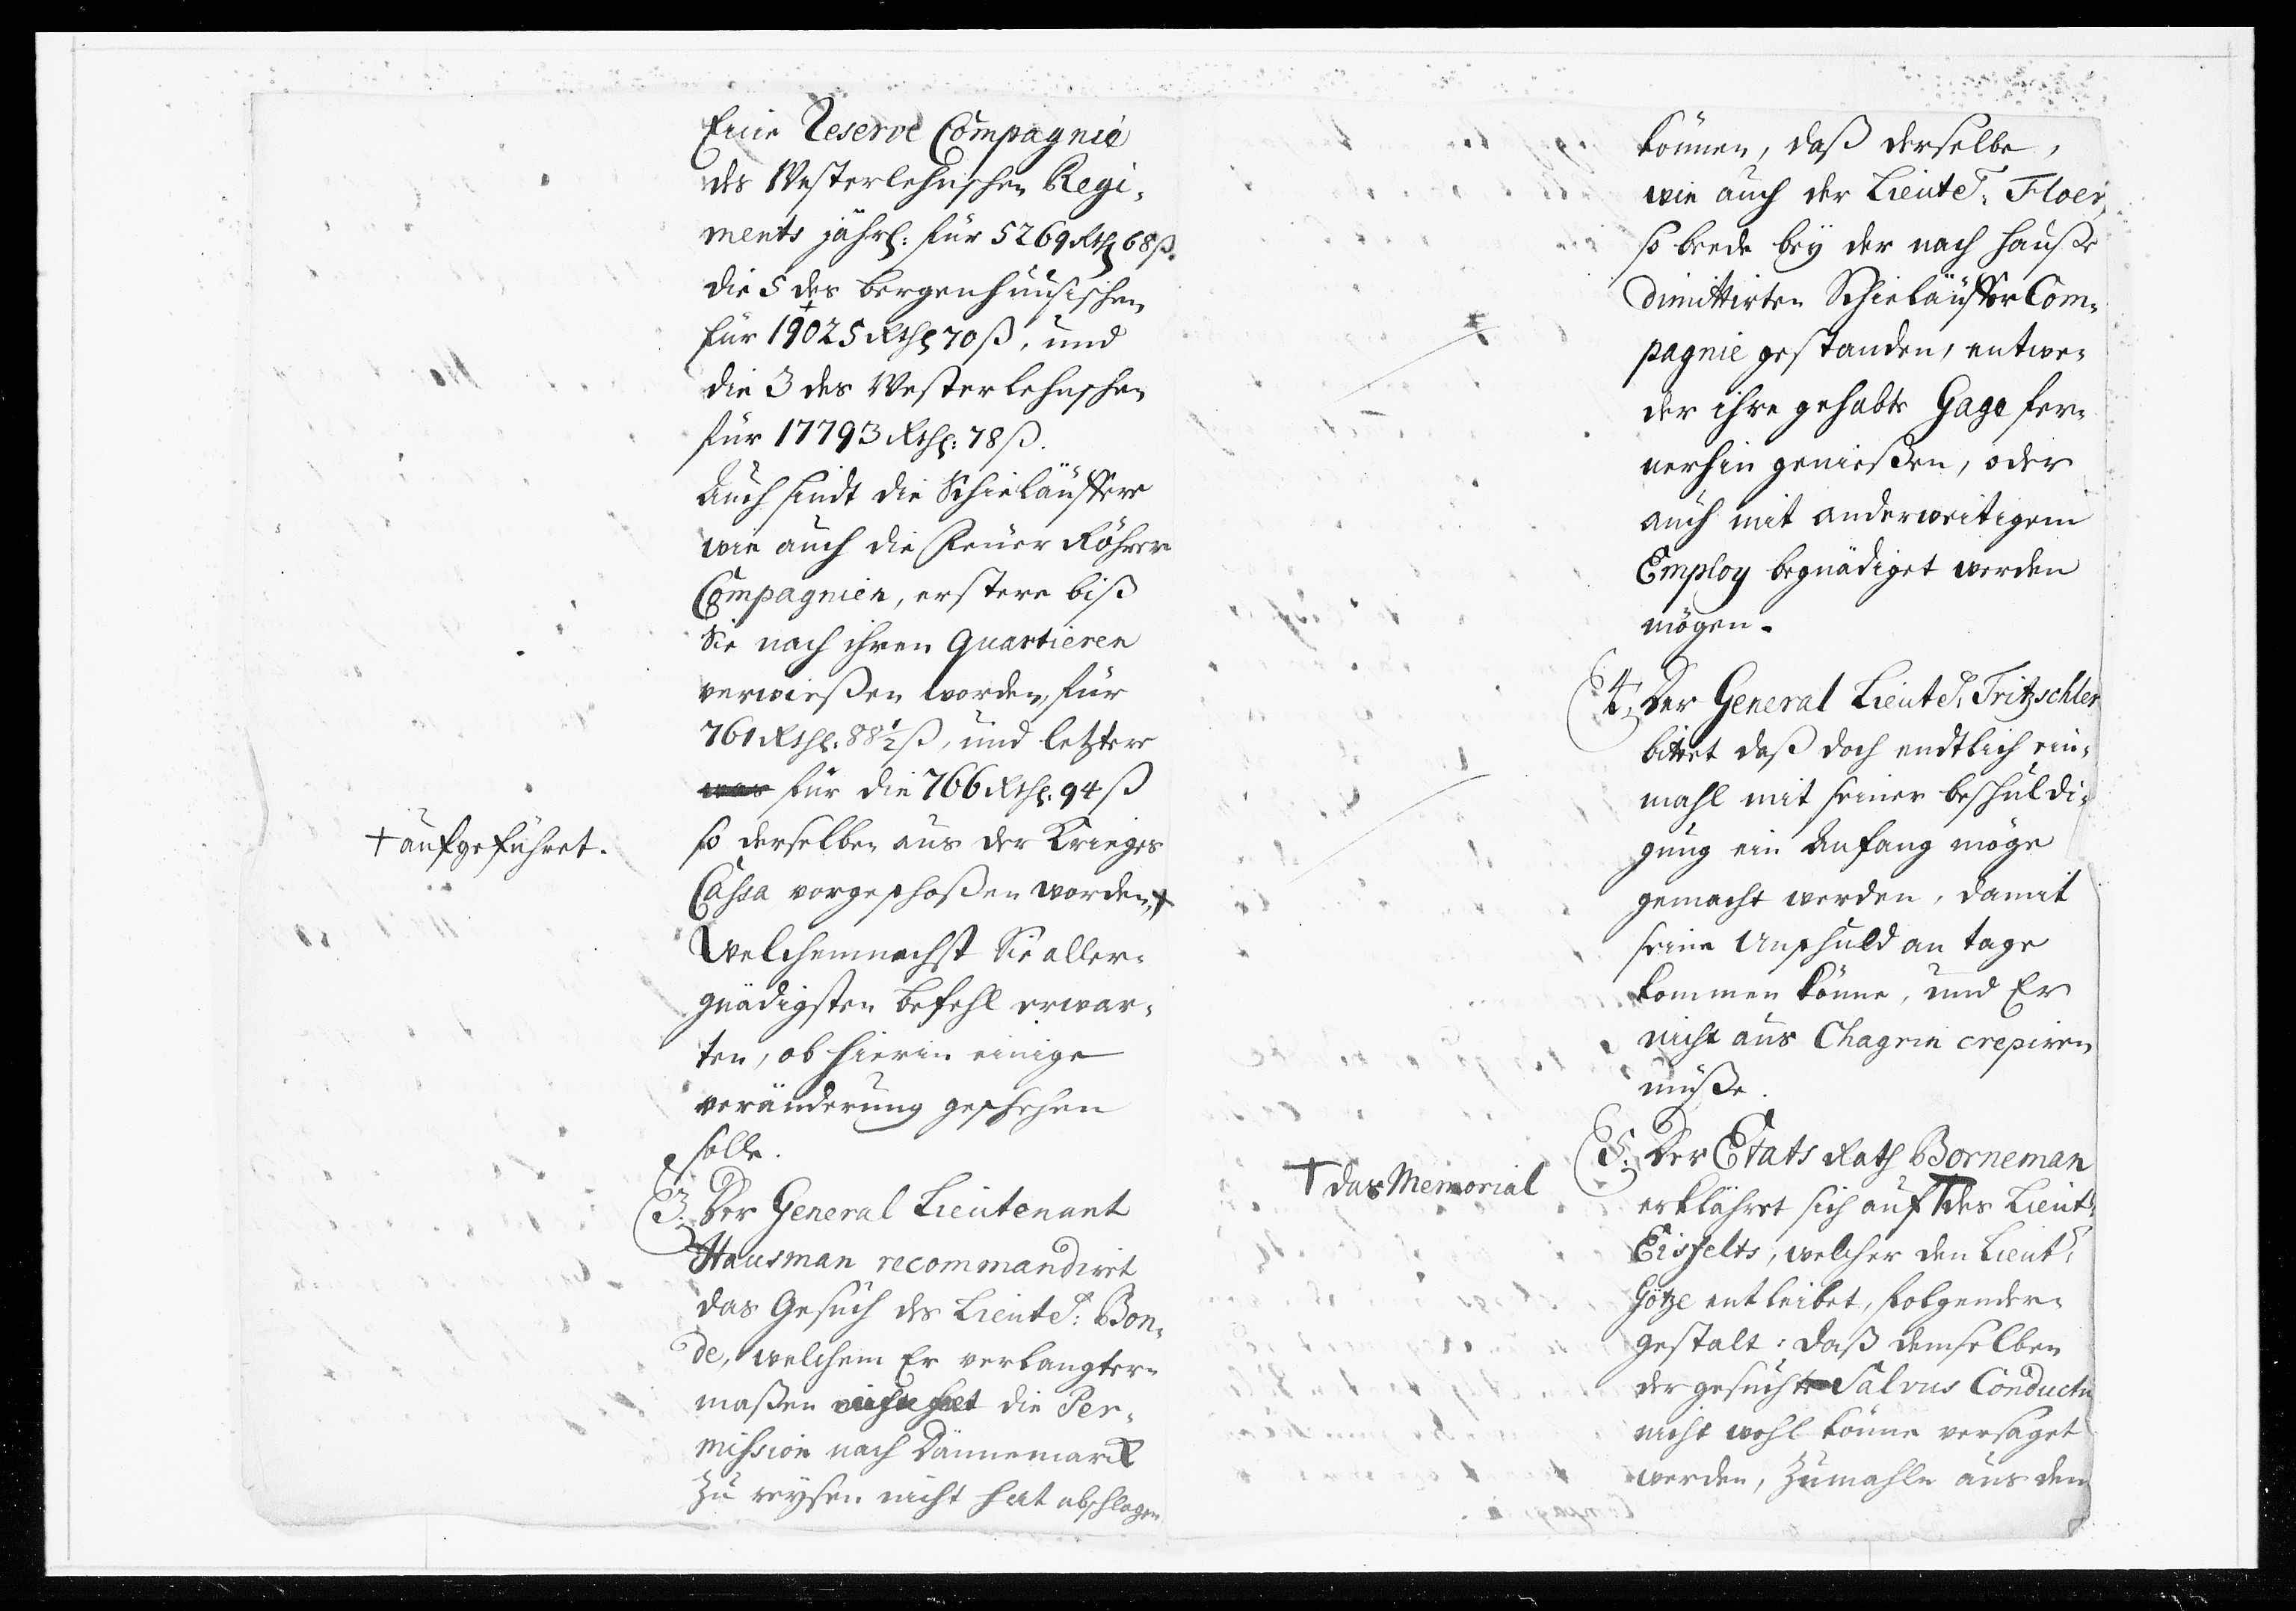 Eine Reserve Compagnie
des Westerlehnschen Regi-
ments jährl: für 5269 Rthl 68 ß.
die 5 des Bergenhuusischen
für 19025 Rthl 70 ß, und
die 3 des Westerlehnschen
für 17793 Rthl: 78 ß.
Auch sindt die Schieläuffere
wie auch die Feuer Röhren
Compagnien, erstere biß
Sie nach ihren Quartieren
verwießen worden, für
761 Rthl: 88½ ß, und letztere
für die 766 Rthl: 94 ß
so derselben aus der Krieges
Cassa vorgeschoßen worden, +
+ aufgeführet.
Welchemnechst Sie aller-
gnädigsten Befehl erwar-
ten, ob hierin einige
veränderung geschehen
solle.
3. Der General Lieutenant
Hausman recommandiret
das Gesuch des Lieutet: Bon-
de, welchem Er verlangter-
maßen die Per-
mission nach Dännemarck
zu reysen nicht hat abschlagen
können, daß derselbe,
wie auch der Lieutet: Floer,
so beede bey der nach Hauße
dimittirten Schieläuffer Com-
pagnie gestanden, entwe-
der ihre gehabte Gage fer-
nerhin genießen, oder
auch mit anderweitigem
Employ begnädiget werden
mögen.
4. Der General Lieutet: Fritzschler
bittet daß doch endtlich ein-
mahl mit seiner beschuldi-
gung ein Anfang möge
gemacht werden, damit
seine Unschuld an tage
kommen könne, und Er
nicht aus Chagrin crepiren
müße.
5. Der Etats Rath Borneman
erklähret sich auf + des Lieut:
+ das Memorial
Eisfelts, welcher den Lieut:
Götze entleibet, folgender-
gestalt: daß demselben
der gesuchte Salvus Conductu
nicht wohl könne versaget
werden, zumahln aus dem